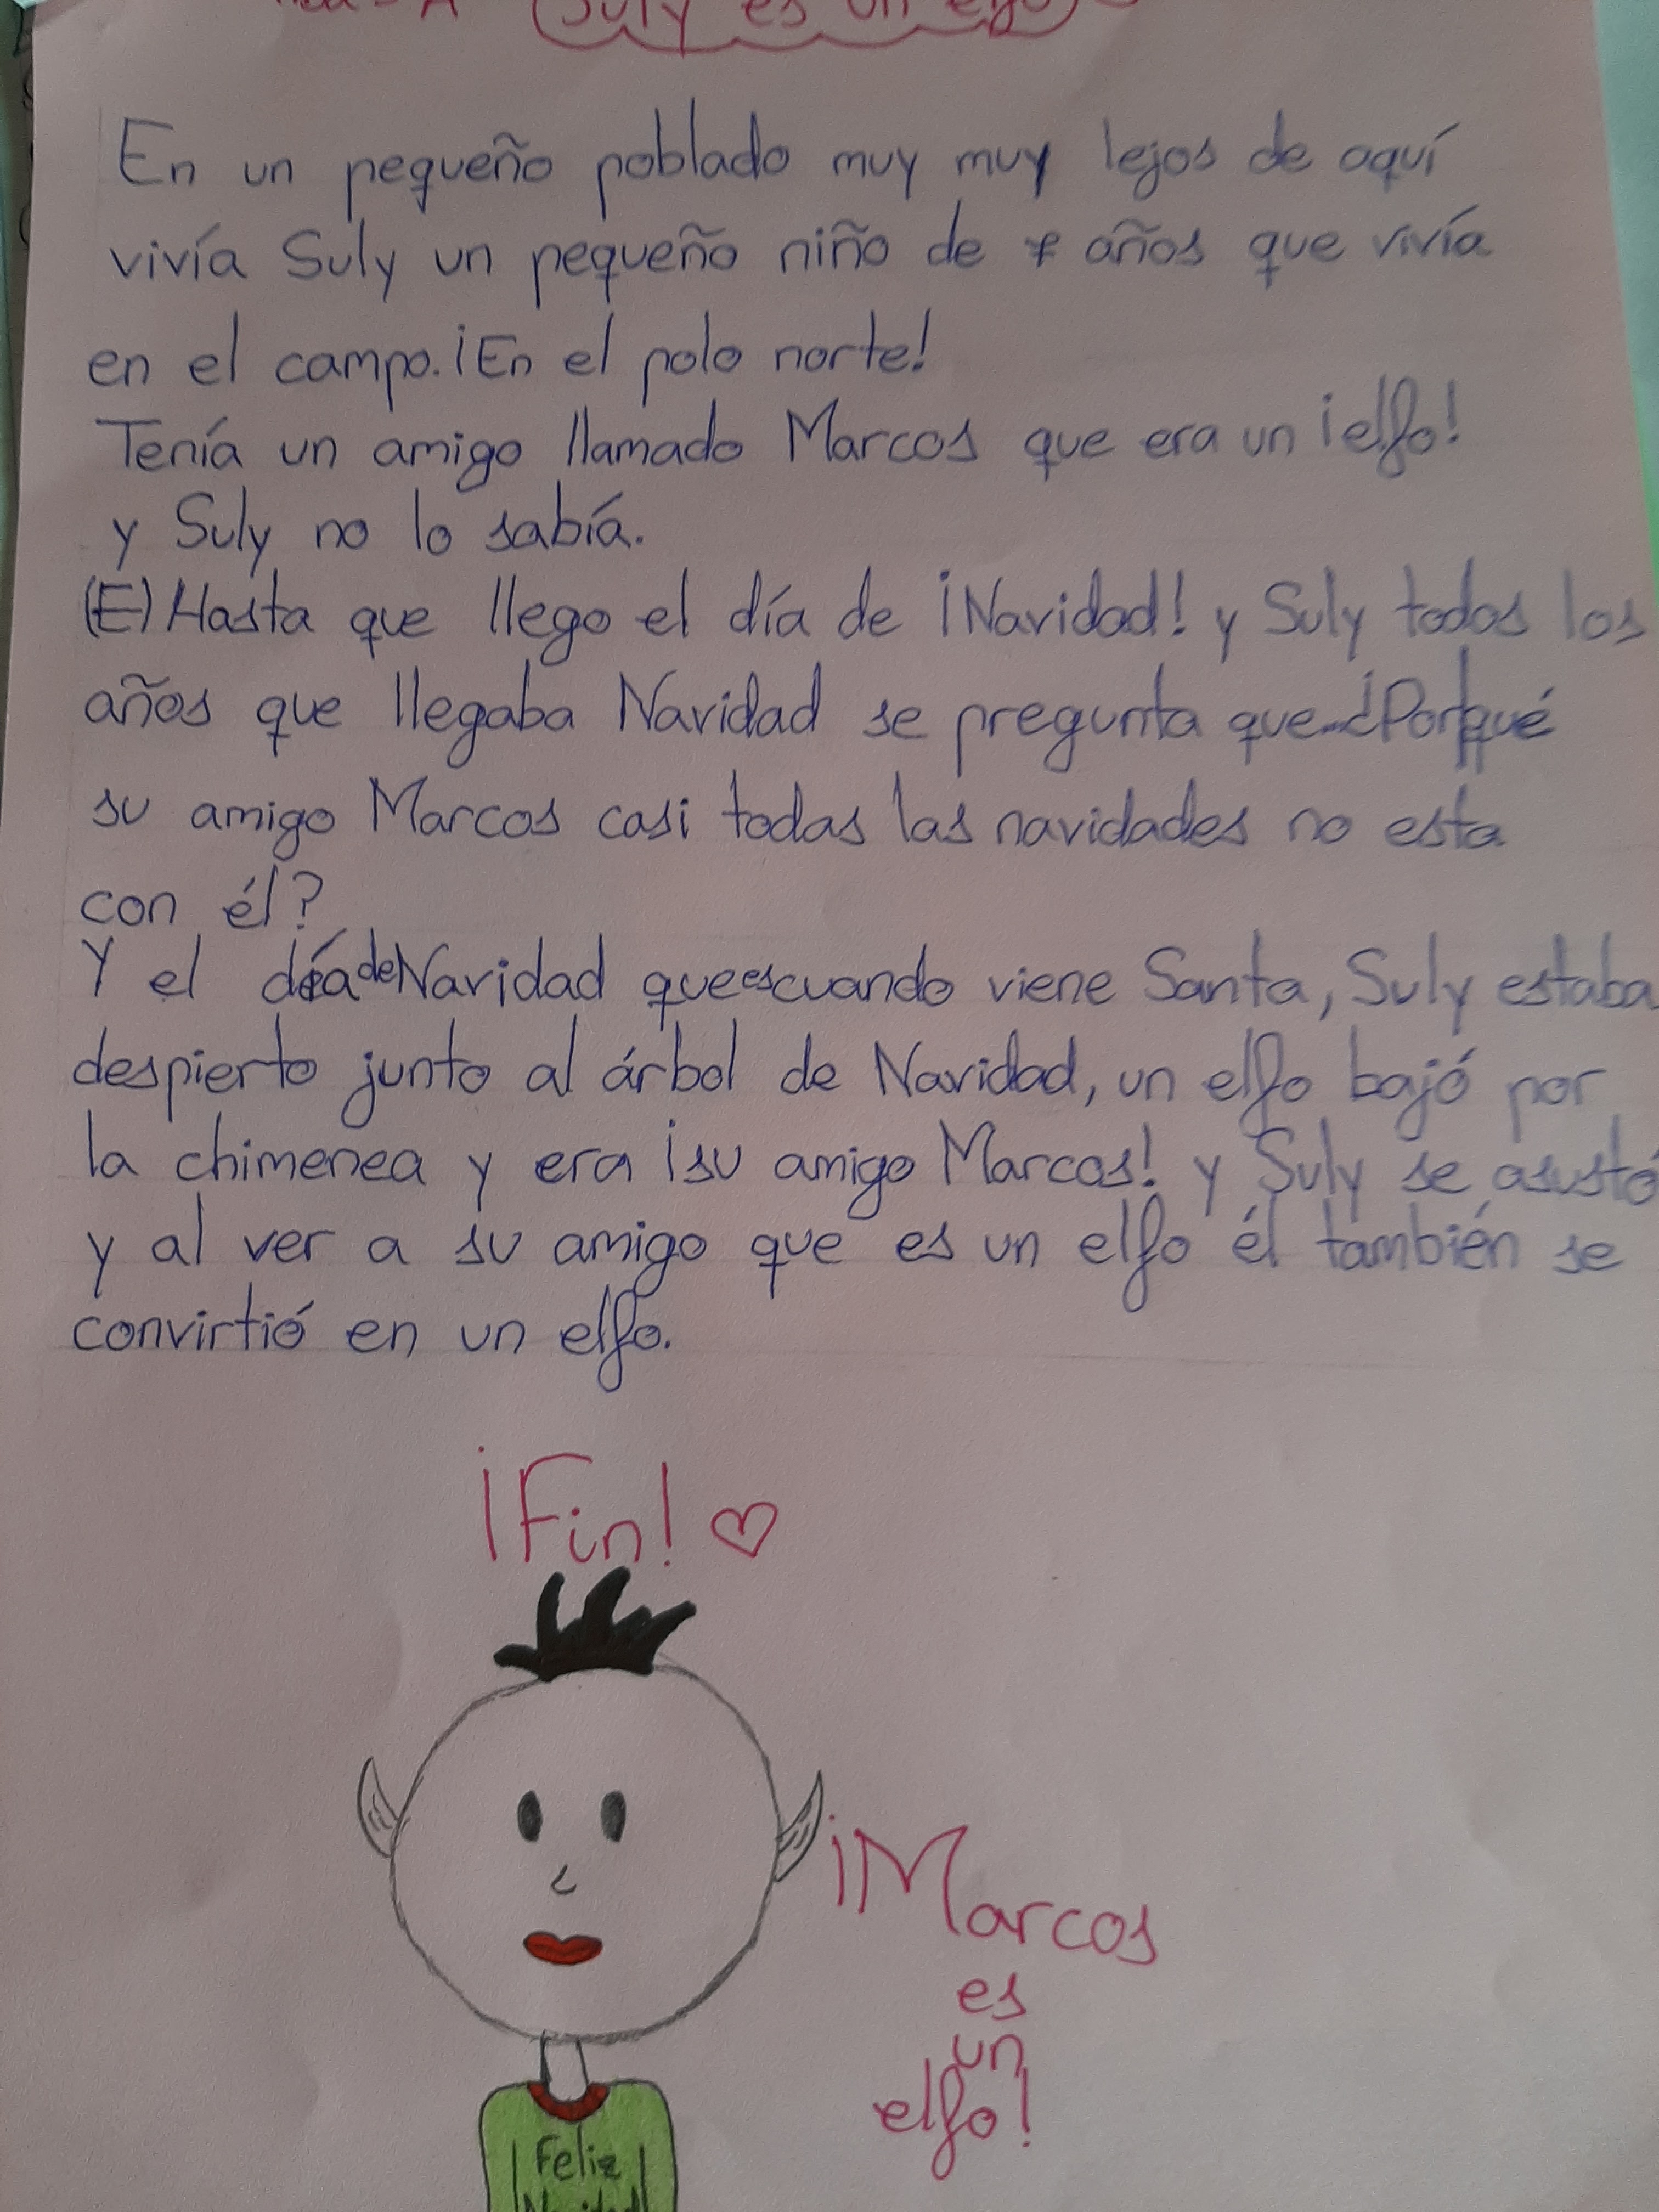 Suly es un elfo
En un pequeño poblado muy muy lejos de aquí
vivía Suly un pequeño niño de 7 años que vivía
en el campo. ¡En el polo norte!
Tenía un amigo llamado Marcos que era un ¡elfo!
y Suly no lo sabía.
(E) Hasta que llego el día de ¡Navidad! y Suly todos los
años que llegaba Navidad se pregunta que...¿Porqué
su amigo Marcos casi todas las navidades no esta
con él?
Y el día de Navidad que es cuando viene Santa, Suly estaba
despierto junto al árbol de Navidad, un elfo bajó por
la chimenea y era ¡su amigo Marcos! y Suly se asustó
y al ver a su amigo que es un elfo él también se
convirtió en un elfo.
¡Fin! ♡
¡Marcos
es
un
elfo!
Feliz
Navidad